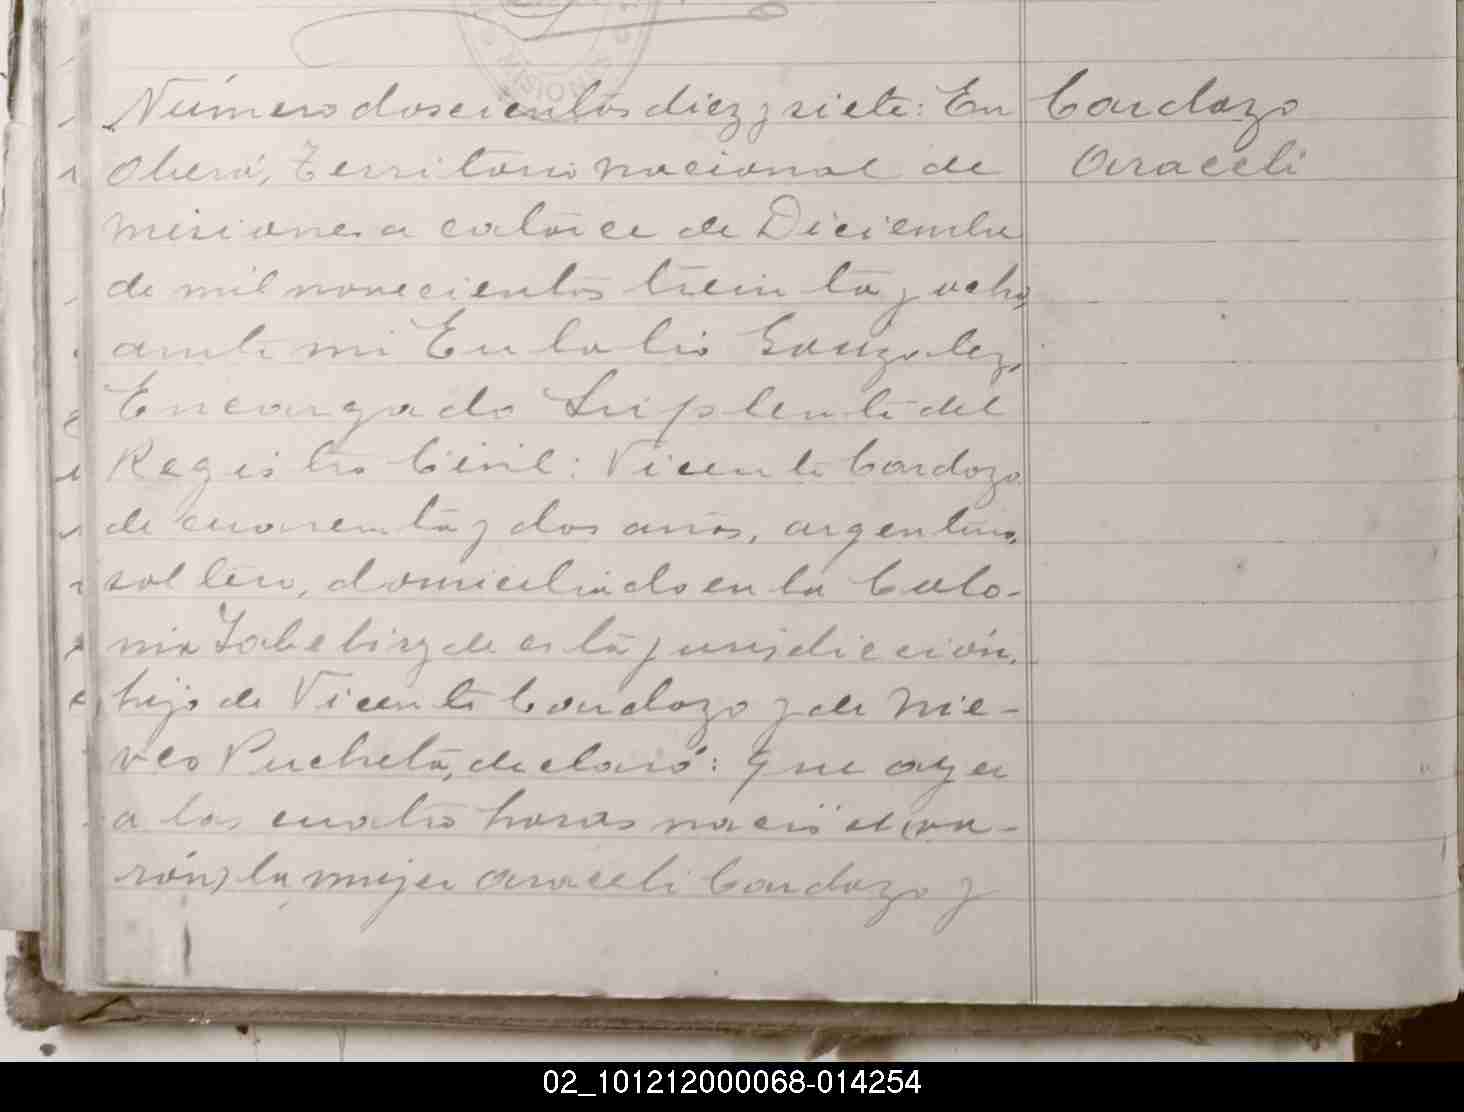 MISIONES
Número doscientos diez y siete: En
Oberá, Territorio nacional de
misiones a catorce de Diciembre
de mil novecientos treinta y ocho,
ante mi Eulalio Gonzalez,
Encargado Suplente del
Registro Civil: Vicente Cardozo
de cuarenta y dos años, argentino,
soltero, domiciliado en la Colo-
nia Yabebiry de esta jurisdicción,
hijo de Vicente Cardozo y de Nie-
ves Pucheta, declaró: que ayer
a las cuatro horas nació el (va-
rón) la mujer Araceli Cardozo y
Cardozo
Araceli
02_101212000068-014254